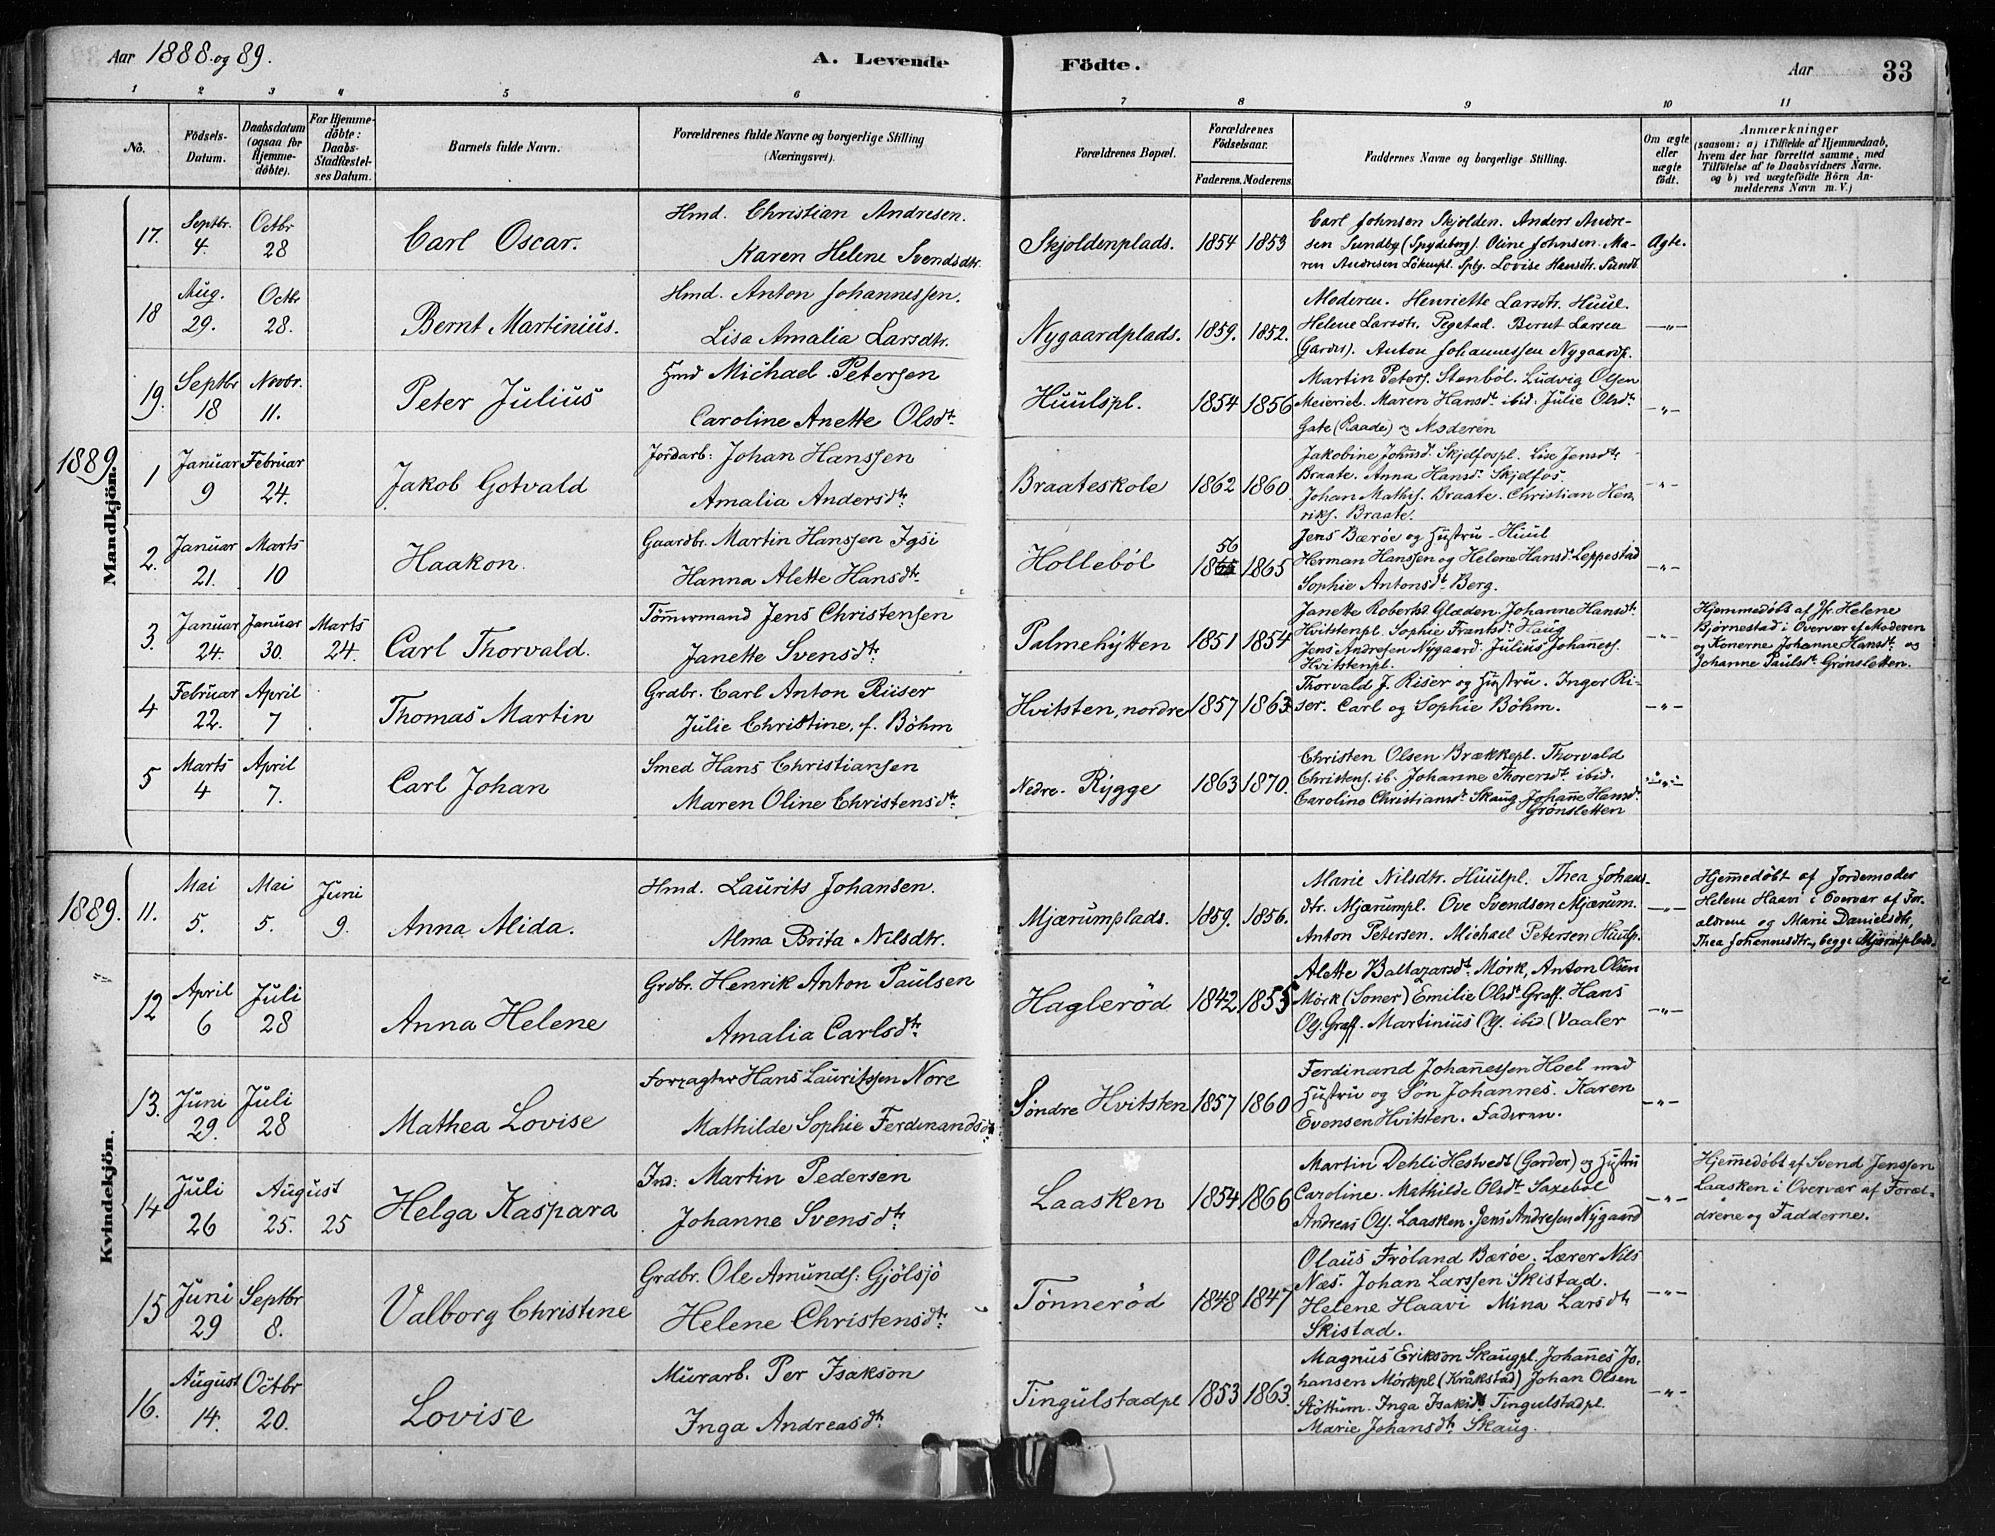 Aar 1888 og 89. A. Levende Födte. Aar 33
1 2 3 4 5 6 7 8 9 10 11
No. Födsels-Datum. Daabsdatum (ogsaa for Hjemme-döbte). For Hjemme-döbte: Daabs-Stadfæstel-ses Datum. Barnets fulde Navn. Forældrenes fulde Navne og borgerlige Stilling (Næringsvei). Forældrenes Bopæl. Forældrenes Födselsaar. Faderens. Moderens. Faddernes Navne og borgerlige Stilling. Om ægte eller uægte födt. Anmærkninger (saasom: a) i Tilfælde af Hjemmedaab, hvem der har forrettet samme, med Tilföielse af to Daabsvidners Navne. og b) ved uægtefödte Börn An-melderens Navn m. V.)
Mandkjön.
17. Septbr. 4. Octbr 28 Carl Oscar. Hmd. Christian Andresen.
Karen Helene Svendsdtr. Skjoldenplads. 1854 1853
Carl Johnsen Skjolden. Anders Andre-
sen Sundby (Spydeborg). Oline Johnsen. Ma-
ren Andresen Lökenpl. Spbg. Lovise Hansdtr. Sundb. Agte.
18 Aug. 29. Octbr 28. Bernt Martinius. Hmd. Anton Johannessen.
Lisa Amalia Larsdtr. Nygaardplads. 1859. 1852.
Moderen. Henriette Larsdtr. Huul.
Helene Larsdtr. Pegstad. Bernt Larsen
(Garder). Anton Johannessen Nygaardp. —"—
19. Septbr 18 Novbr. 11. Peter Julius Hmd Michael Petersen
Caroline Anette Olsdt. Huulspl. 1854 1856
Martin Peters. Stenböl. Ludvig Olsen
Meieriet. Maren Hansdt ibid: Julie Olsdt.
Gate (Raade) og Moderen —"—
1889.
1 Januar 9 Februar 24. Jakob Gotvald Jordarb: Johan Hanssen
Amalia Andersdt. Braateskole 1862 1860.
Jakobine Johnsd. Skjelfospl. Lise Jensdt.
Braate. Anna Hansd. Skjelfos.
Johan Mathis. Braate. Christian Hen
riks. Braate. —"—
2. Januar 21. Marts 10 Haakon. Gaardbr. Martin Hanssen Igsi
Hanna Alette Hansdt. Holleböl 56 18 1865
Jens Bæröe og Hustru - Huul
Herman Hanssen og Helene Hansd. Leppestad
Sophie Antonsdt. Berg. —"—
3. Januar 24. Januar 30. Marts 24. Carl Thorvald. Tömmermand Jens Christensen
Janette Svensdt. Palmehytten 1851 1854
Janette Robertsd. Glæden. Johanne Hansdt.
Hvitstenpl. Sophie Frantsdt. Haug
Jens Andresen Nygaard. Julius Johaness.
Hvitstenpl. —"—
Hjemmedöbt af Jfr. Helene
Bjørnestad i Overvær af Moderen
og Konerne Johanne Hansdt. og
Johanne Paulsdt. Grönsletten.
4 Februar 22. April 7 Thomas Martin Grdbr. Carl Anton Riiser
Julie Christine, f. Böhm Hvitsten, nordre 1857 1863
Thorvald J. Riser og Hustru. Inger Ri-
ser. Carl og Sophie Böhm. —"—
5 Marts 4 April 7. Carl Johan Smed Hans Christiansen
Maren Oline Christensdt. Nedre. Rygge 1863 1870.
Christen Olsen Brækkepl. Thorvald
Christens. ib. Johanne Thorersdt. ibid.
Caroline Christiansdt. Skaug Johanne Hansdt.
Grönsletten —"—
Kvindekjön.
1889.
11. Mai 5. Mai 5. Juni 9. Anna Alida. Hmd. Laurits Johansen.
Alma Brita Nilsdtr. Mjærumplads. 1859. 1856.
Marie Nilsdtr. Huulpl. Thea Johans-
dtr. Mjærumpl. Ove Svendsen Mjærum.
Anton Petersen. Michael Petersen Huulp. —"—
Hjemmedöbt af Jordemoder
Helene Haavi i Overvær af For-
ældrene og Marie Danielsdtr,
Thea Johannesdtr., begge Mjærumplads.
12 April 6 Juli 28 Anna Helene Grdbr. Henrik Anton Paulsen
Amalia Carlsdt. Hagleröd 1842 1855
Alette Baltazarsdt. Mörk, Anton Olsen
Mörk (Soner) Emilie Olsdt. Graff. Hans
Ols. Graff. Martinius Ols. ibid. (Vaaler —"—
13. Juni 29. Juli 28 Mathea Lovise Forpagter Hans Lauritssen Nore
Mathilde Sophie Ferdinandsdt. Söndre Hvitsten 1857 1860
Ferdinand Johannessen Hoel med
Hustru og Sön Johannes. Karen
Evensen Hvitsten. Faderen. —"—
14 Juli 26 August 25. 25 Helga Kaspara Ind: Martin Pedersen
Johanne Svensdt. Laasken 1854 1866
Martin Dehli Hestvedt (Garder) og Hustru
Caroline. Mathilde Olsdt. Saxeböl
Andreas Ols. Laasken. Jens Andresen Nygaard —"—
Hjemmedöbt af Svend Jenssen
Laasken i Overvær af Foræl-
drene og Fadderne.
15 Juni 29 Septbr 8. Valborg Christine Grdbr. Ole Amunds: Gjölsjö
Helene Christensdt. Tönneröd 1848 1847
Olaus Fröland Bæröe. Lærer Nils
Næs. Johan Larssen Skistad.
Helene Haavi Mina Larsdt.
Skistad. —"—
16. August 14. Octbr 20. Lovise Murarb. Per Isakson
Inga Andreasdt. Tingulstadpl 1853 1863.
Magnus Erikson Skaugpl. Johannes Jo-
hansen Mörkpl (Kråkstad) Johan Olsen
Stöttum. Inga Isaksdt. Tingulstadpl.
Marie Johansdt. Skaug. —"—